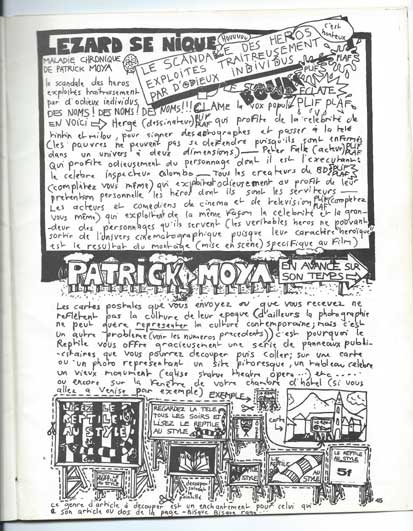 LEZARD SE NIQUE
HOUUUUU
c'est honteux
MALADIE CHRONIQUE
DE PATRICK MOYA
LE SCANDALE DES HEROS
EXPLOITES TRAITREUSEMENT
PAR D'ODIEUX INDIVIDUS
le scandale des heros
exploites traitreusement
par d'odieux individus,
POUR
ECLATE
DES NOMS! DES NOMS! DES NOMS!!! CLAME la vox populi PLIF PLAF
EN VOICI → Hergé (dessinateur) PLIF PLAF qui profite de la celebrité de
tintin et milou, pour signer des autographes et passer à la télé
(les pauvres ne peuvent pas se defendre puisqu'ils sont enfermés
dans un univers à deux dimensions) — Piter Felle (acteur) PLIF PLAF
Qui profite odieusement du personnage dont il est l'executant
le celebre inspecteur Colombo — Tous les createurs de BD PLIF PLAF
(completez vous même) qui exploitent odieusement au profit de leur
pretention personnelle, les héros dont ils sont les serviteurs —
Les acteurs et comediens de cinema et de television PLIF PLAF (completez
vous même) qui exploitent de la même façon la celebrité et la gran-
deur des personnages qu'ils servent (les veritables heros ne pouvant
sortir de l'univers cinematographique puisque leur caractère heroïque
est le resultat du montage (mise en scène) specifique au Film)
PATRICK MOYA
EN AVANCE SUR
SON TEMPS
Les cartes postales que vous envoyez ou que vous recevez ne
reflètent pas la culture de leur epoque (d'ailleurs la photographie
ne peut guère representer la culture contemporaine; mais c'est
un autre problème (voir les numeros precedents)) c'est pourquoi le
Reptile vous offre gracieusement une serie de panneaux publi-
citaires que vous pourrez decouper puis coller; sur une carte
ou un photo representant un site pitoresque, un tableau célèbre
un vieux monument (eglise statue theatre opera... etc.....
ou encore sur la fenêtre de votre chambre d'hôtel (si vous
allez à Venise par exemple)
EXEMPLE
LE REPTILE AU STYLE
REGARDEZ LA TELE
TOUS LES SOIRS ET
LISEZ LE REPTILE
AU STYLE
carte
REPTILE
AU STYLE
AU STYLE
LE REPTILE
AU STYLE
51
decouper
45
ce genre d'article à decouper est un enchantement pour celui qui
a son article au dos de la page